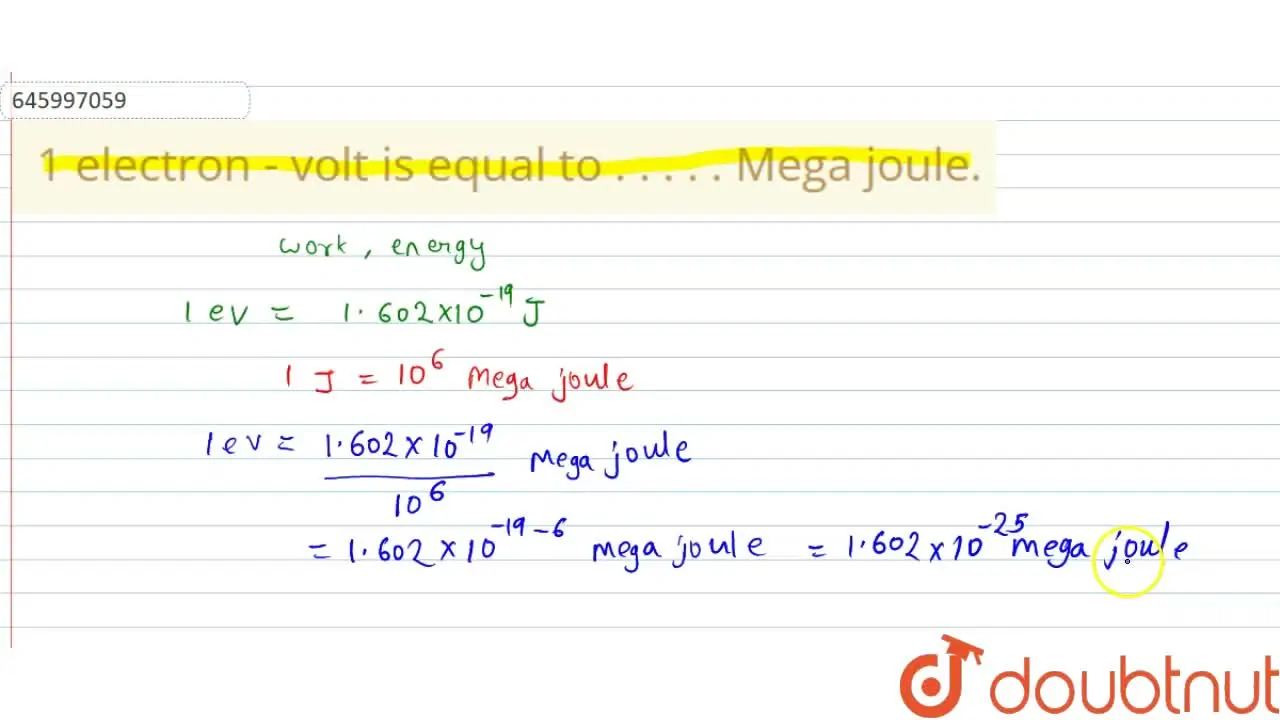 645997059
1 electron - volt is equal to . . . . . Mega joule.
work, energy
1 ev = 1.602×10⁻¹⁹ J
1 J = 10⁶ Mega joule
1 ev = 1.602×10⁻¹⁹ / 10⁶ Mega joule
= 1.602×10⁻¹⁹⁻⁶ mega joule = 1.602×10⁻²⁵ mega joule
doubtnut